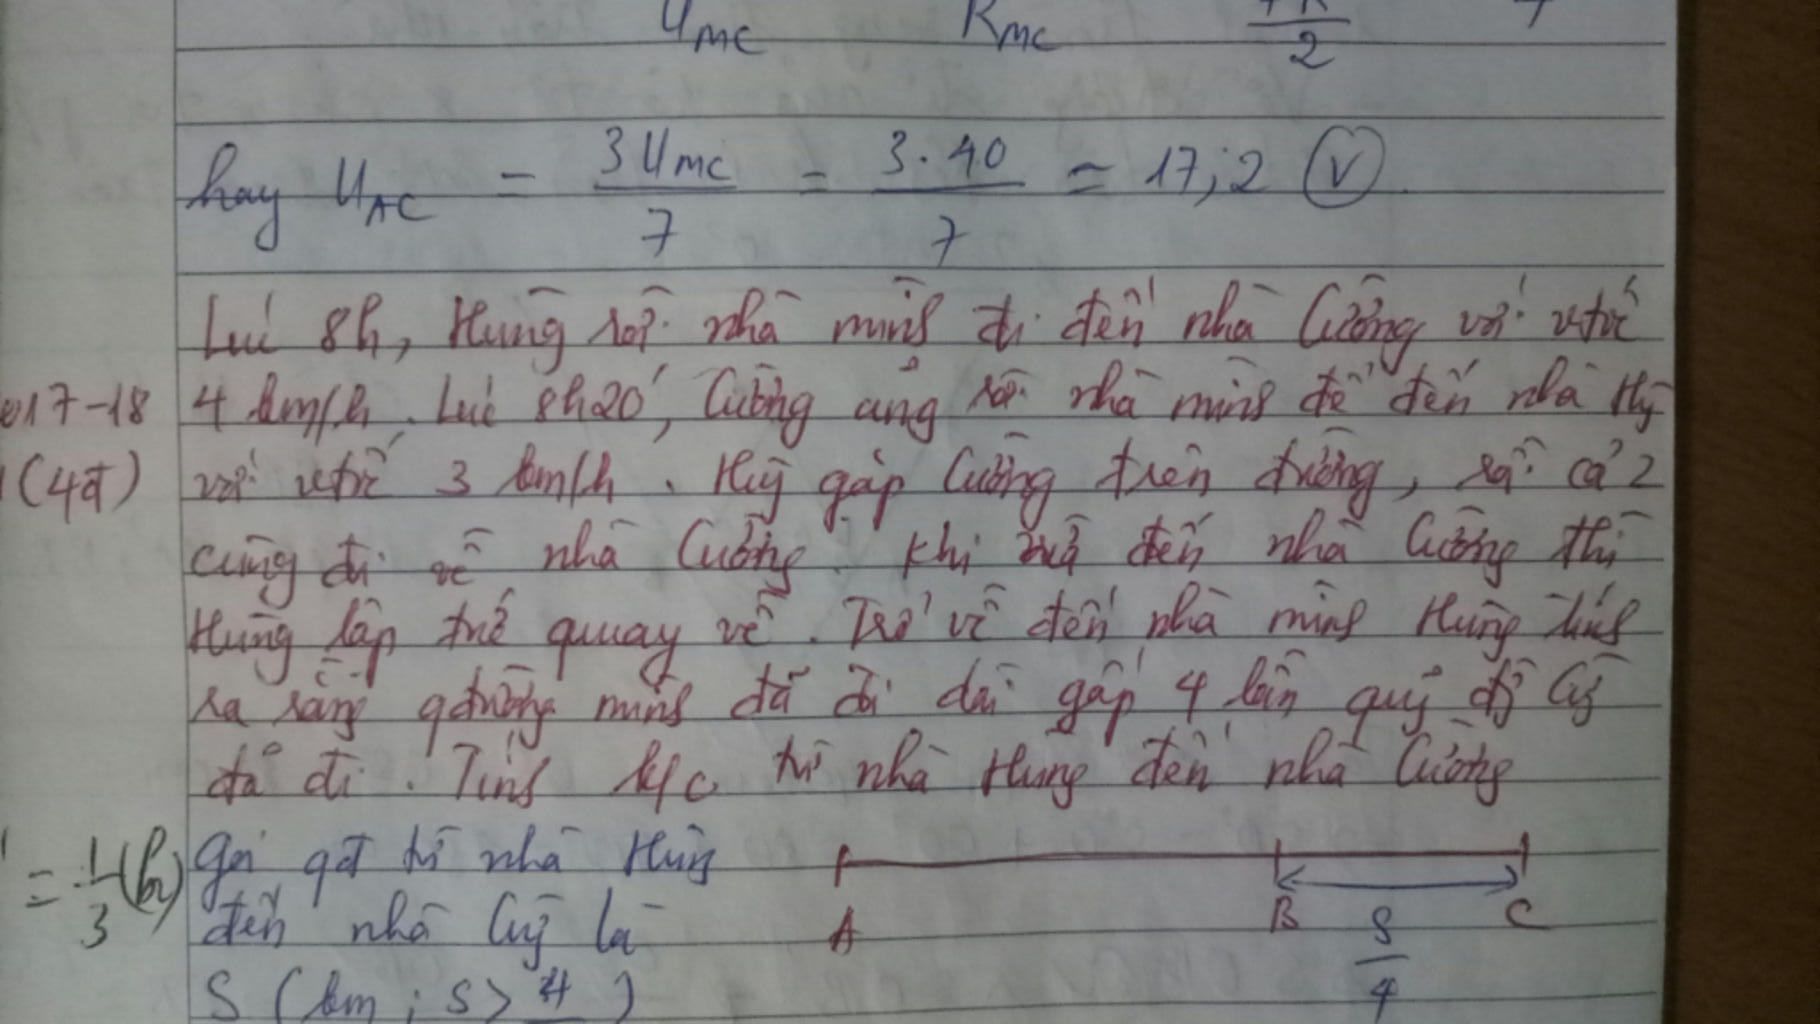 U_MC R_MC 2
hay U_AC = 3U_MC / 7 = 3.40 / 7 ≈ 17,2 (V)
Lúc 8h, Hùng rời nhà mình đi đến nhà Cường với vtốc
017-18 4 km/h. Lúc 8h20', Cường cũng rời nhà mình để đến nhà Hg
(4đ) với vtốc 3 km/h. Hg gặp Cường trên đường, rồi cả 2
cùng đi về nhà Cường. Khi đến nhà Cường thì
Hùng lập tức quay về. Trở về đến nhà mình Hùng tính
ra rằng qđường mình đã đi dài gấp 4 lần quãg đg Cg
đã đi. Tính k/c từ nhà Hùng đến nhà Cường
= 1/3 (h) Gọi qđ từ nhà Hùng
đến nhà Cg là A B C
S/4
S (km; S > 4 )